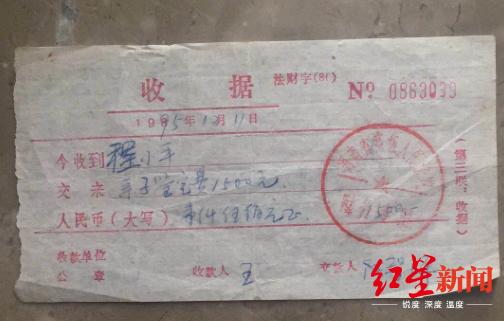 收据 法财字(81) № 0863039
1995年12月11日
今收到 程小平
交来 亲子鉴定费1500元.
人民币（大写） 壹仟伍佰元正
（第三联：收据）
收款单位
公 章
收款人 王
交款人
1500.-
红星新闻
锐度 深度 温度